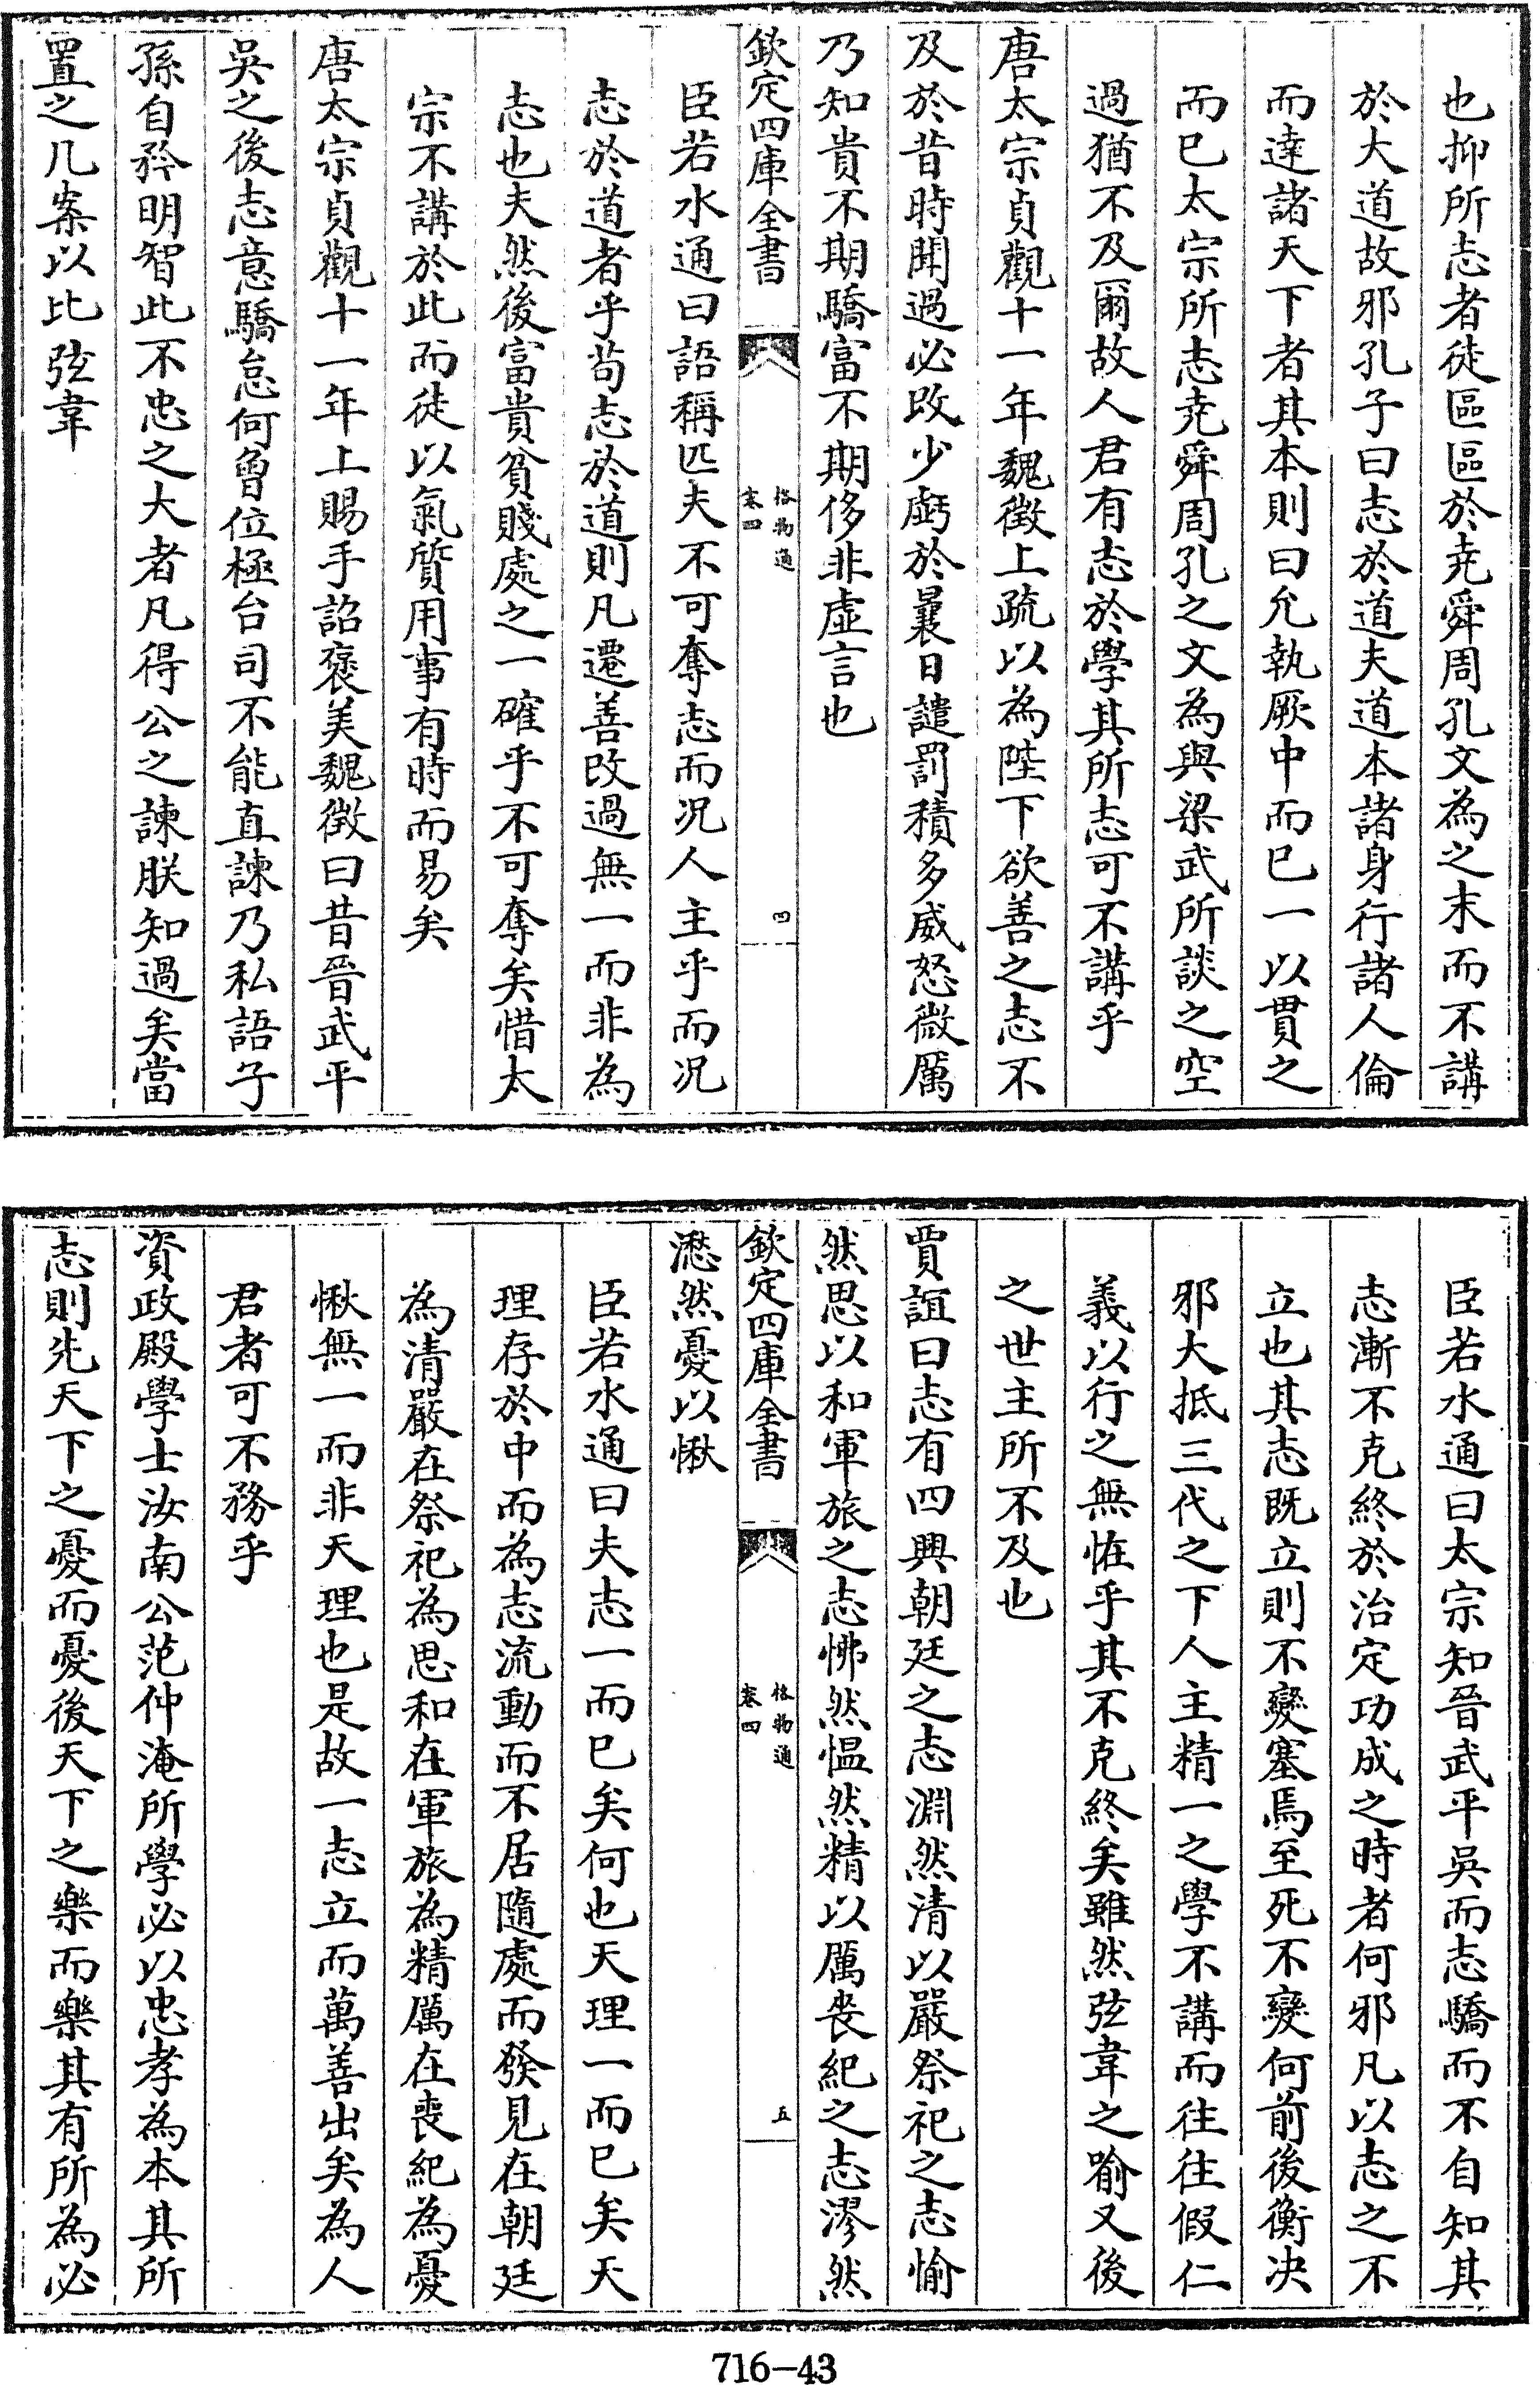 也抑所志者徒區區於堯舜周孔文為之末而不講
於大道故邪孔子曰志於道夫道本諸身行諸人倫
而達諸天下者其本則曰允執厥中而已一以貫之
而已太宗所志堯舜周孔之文為與梁武所談之空
過猶不及爾故人君有志於學其所志可不講乎
唐太宗貞觀十一年魏徵上疏以為陛下欲善之志不
及於昔時聞過必改少虧於曩日譴罰積多威怒微厲
乃知貴不期驕富不期侈非虛言也
欽定四庫全書
格物通
卷四
四
臣若水通曰語稱匹夫不可奪志而況人主乎而況
志於道者乎苟志於道則凡遷善改過無一而非為
志也夫然後富貴貧賤處之一確乎不可奪矣惜太
宗不講於此而徒以氣質用事有時而易矣
唐太宗貞觀十一年上賜手詔褒美魏徵曰昔晉武平
吳之後志意驕怠何曾位極台司不能直諫乃私語子
孫自矜明智此不忠之大者凡得公之諫朕知過矣當
置之几案以比弦韋
臣若水通曰太宗知晉武平吳而志驕而不自知其
志漸不克終於治定功成之時者何邪凡以志之不
立也其志既立則不變塞焉至死不變何前後衡決
邪大抵三代之下人主精一之學不講而往往假仁
義以行之無恠乎其不克終矣雖然弦韋之喻又後
之世主所不及也
賈誼曰志有四興朝廷之志淵然清以嚴祭祀之志愉
然思以和軍旅之志怫然慍然精以厲喪紀之志漻然
欽定四庫全書
格物通
卷四
五
懣然憂以愀
臣若水通曰夫志一而已矣何也天理一而已矣天
理存於中而為志流動而不居隨處而發見在朝廷
為清嚴在祭祀為思和在軍旅為精厲在喪紀為憂
愀無一而非天理也是故一志立而萬善出矣為人
君者可不務乎
資政殿學士汝南公范仲淹所學必以忠孝為本其所
志則先天下之憂而憂後天下之樂而樂其有所為必
716-43